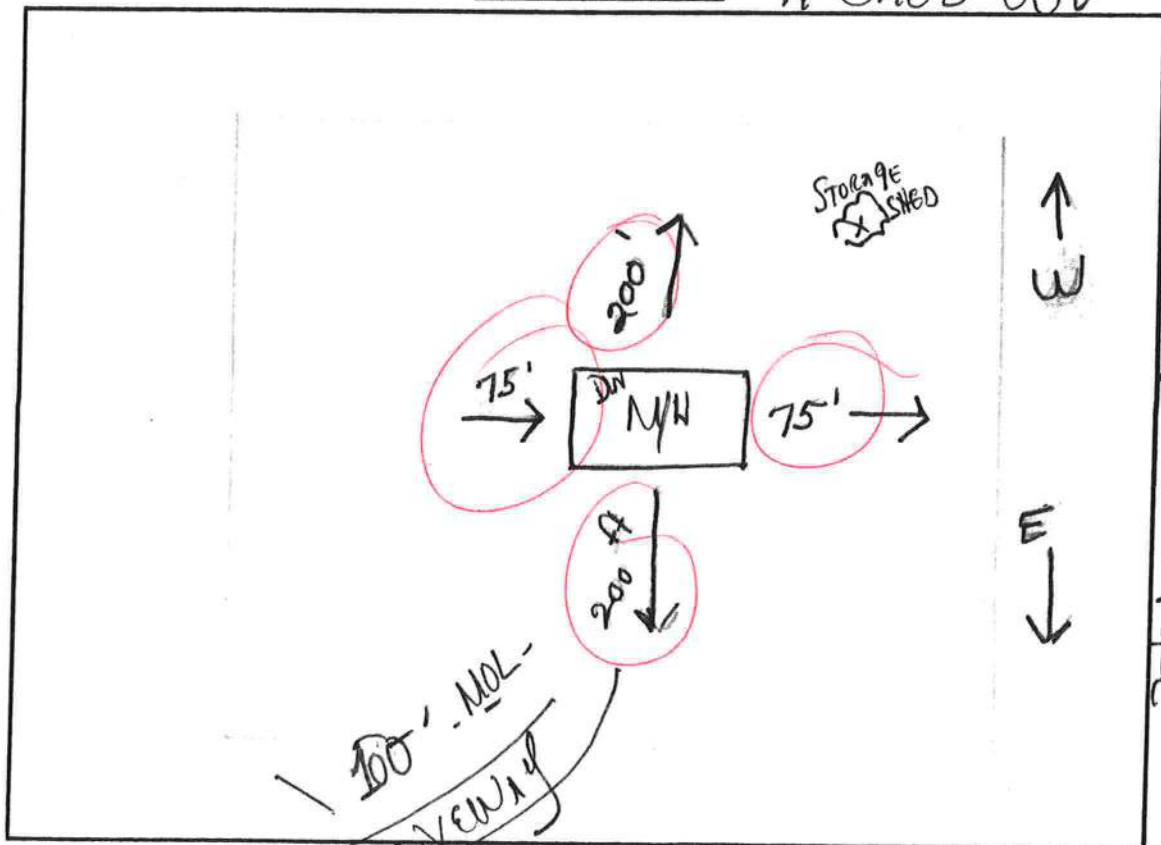 STORAGE
SHED
W
200'
75'
DW
M/H
75'
200 ft
E
100' - MOL -
VEWAY